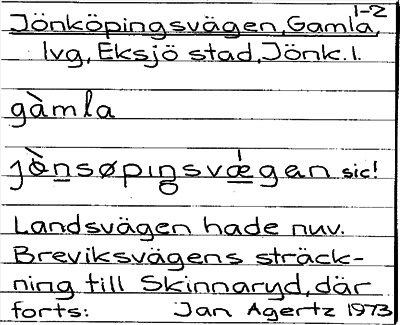 1-2
Jönköpingsvägen, Gamla,
lvg, Eksjö stad, Jönk. l.
gàmla
jò̱nsøpın̥svǽ̱gan sic!
Landsvägen hade nuv.
Breviksvägens sträck-
ning till Skinnaryd, där
forts: Jan Agertz 1973